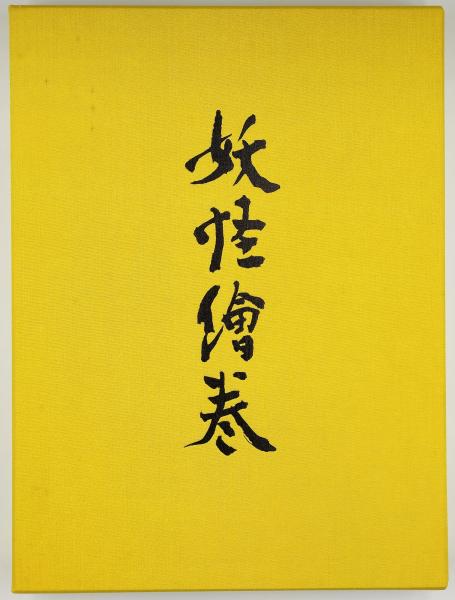 妖怪繪巻